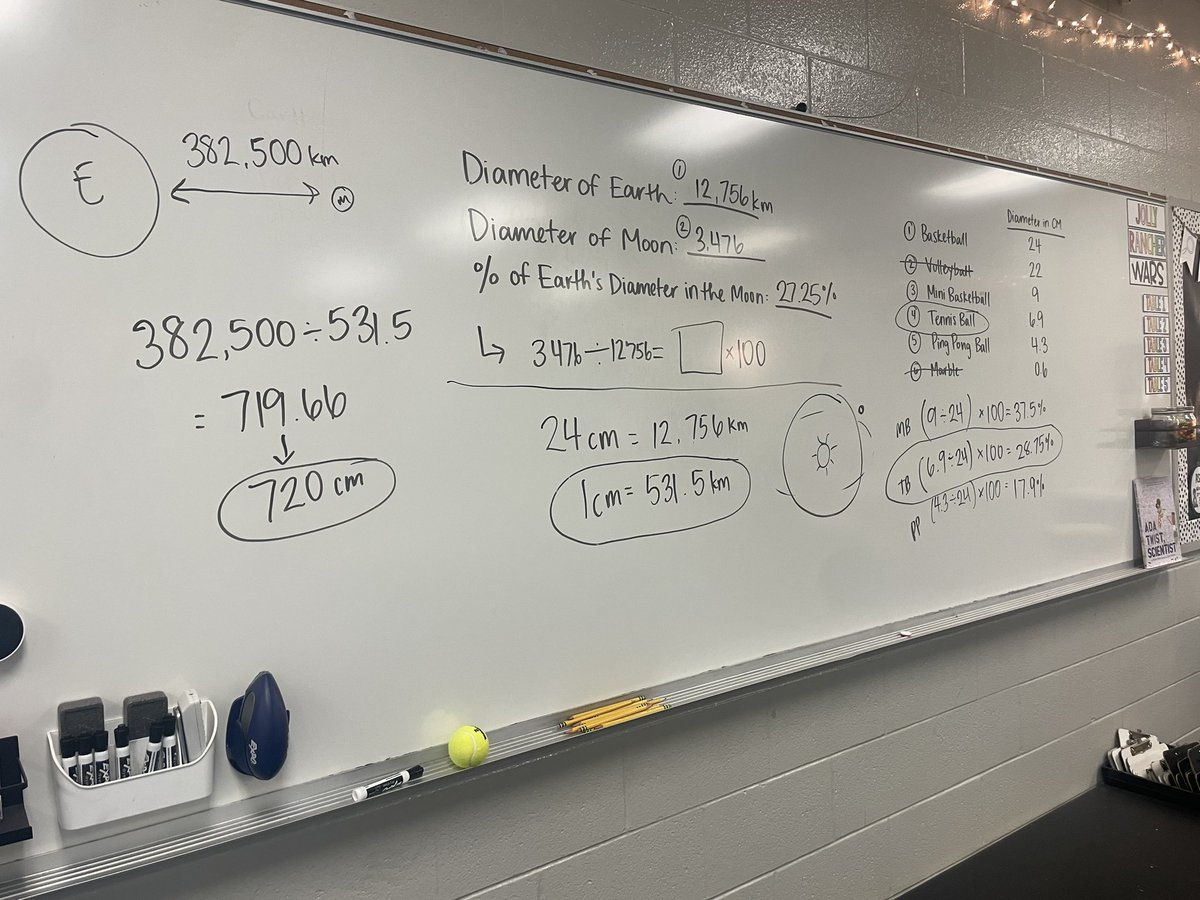 E
382,500 km
M
382,500 ÷ 531.5
= 719.66
720 cm
Diameter of Earth: ① 12,756 km
Diameter of Moon: ② 3,476
% of Earth's Diameter in the Moon: 27.25%
3476 ÷ 12756 = × 100
24 cm = 12,756 km
1 cm = 531.5 km
Diameter in CM
① Basketball 24
② Volleyball 22
③ Mini Basketball 9
④ Tennis Ball 6.9
⑤ Ping Pong Ball 4.3
⑥ Marble 0.6
MB (9÷24) × 100 = 37.5%
TB (6.9÷24) × 100 = 28.75%
PP (4.3÷24) × 100 = 17.9%
JOLLY
RANCHER
WARS
TABLE 1
TABLE 2
TABLE 3
TABLE 4
TABLE 5
ADA
TWIST,
SCIENTIST
EXPO